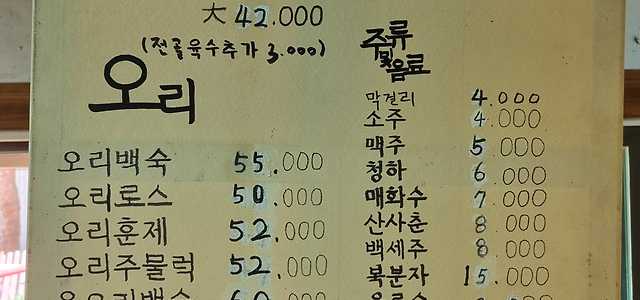 大 42.000
(전골육수추가 3.000)
오리
오리백숙 55.000
오리로스 50.000
오리훈제 52.000
오리주물럭 52.000
주류
및
음료
막걸리 4.000
소주 4.000
맥주 5.000
청하 6.000
매화수 7.000
산사춘 8.000
백세주 8.000
복분자 15.000